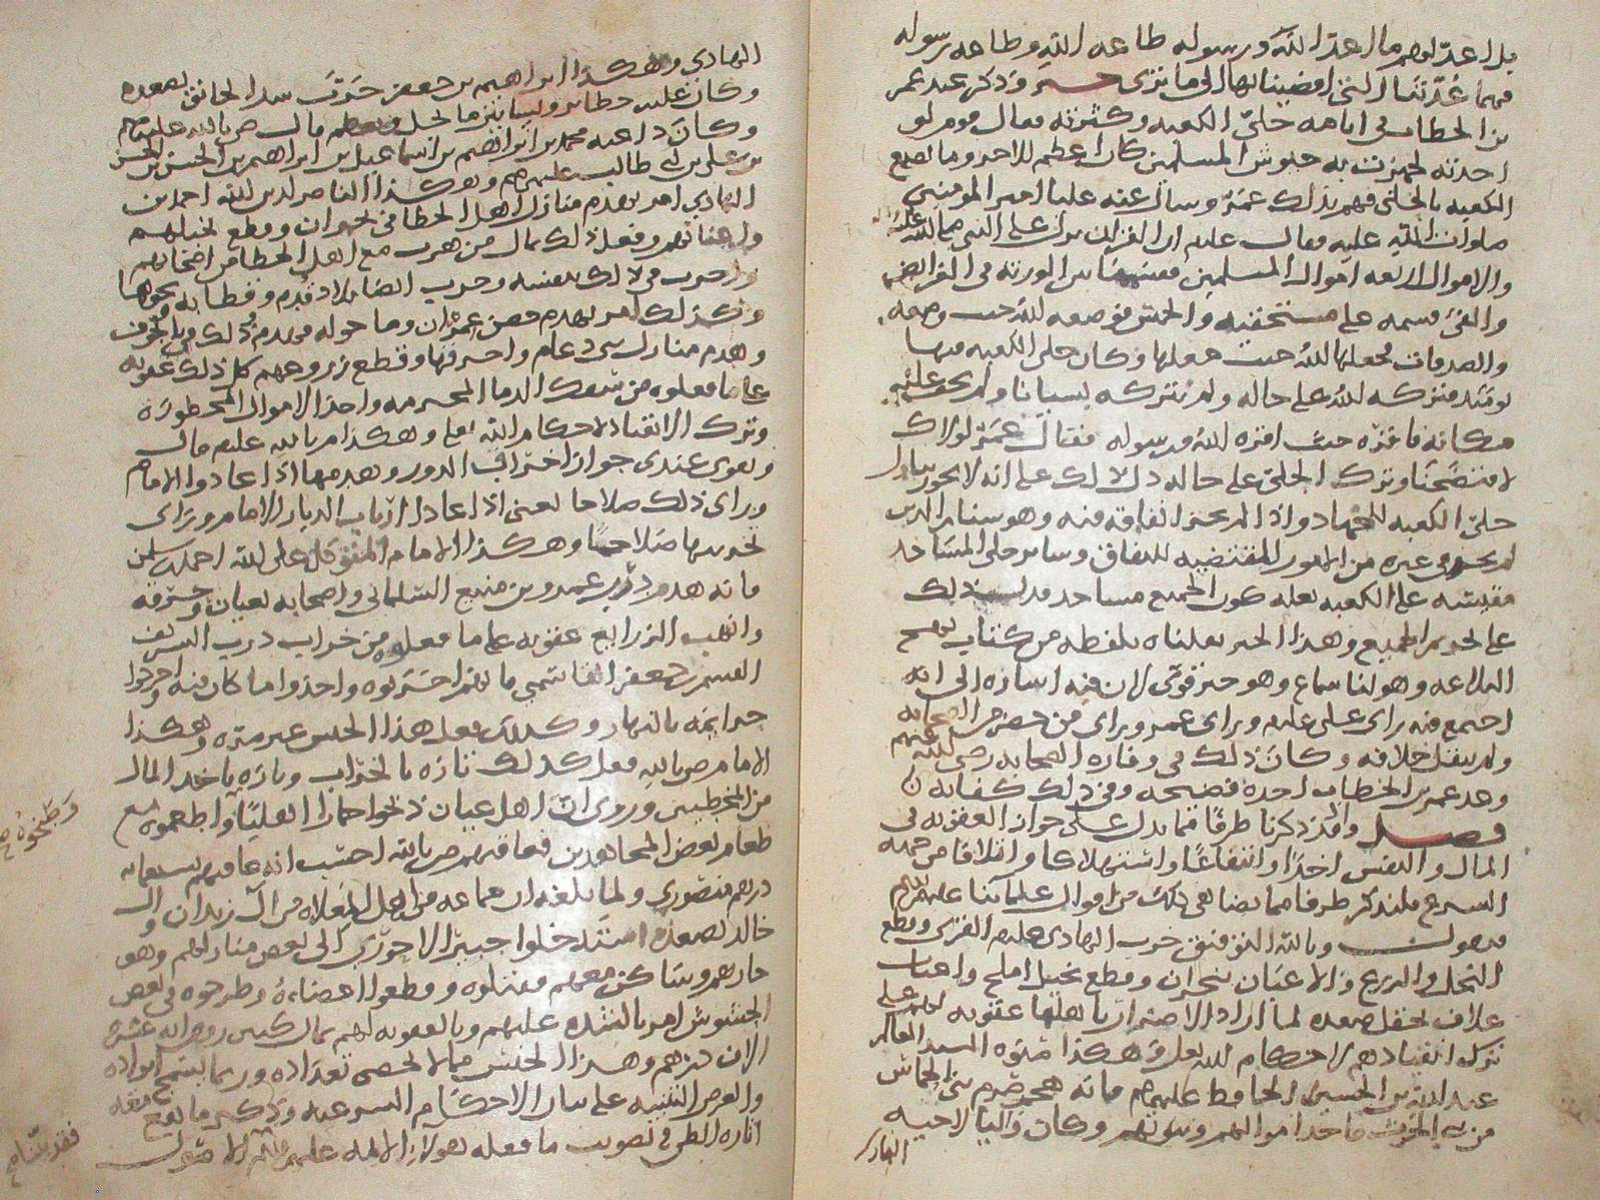 بل اعد لهم ما اعد الله ورسوله طاعه الله وطاعه رسوله
فهما عدتنا التي افضينا بها الى ما نرى خبر وذكر عند عمر
بن الخطاب في ايامه حلي الكعبه وكثرته فقال قوم لو
اخذته فجهزت به جيوش المسلمين كان اعظم للاجر وما تصنع
الكعبه بالحلي فهم بذلك عمر وسال عنه عليا امير المومنين
صلوات الله عليه فقال عليم ان القران نزل على النبي صلى الله عليه
والاموال اربعه اموال المسلمين فقسمها بين الورثه في الفرايض
والفي فقسمه على مستحقيه والخمس فوضعه الله حيث وضعه
والصدقات فجعلها الله حيث جعلها وكان حلي الكعبه فيها
يومئذ فتركه الله على حاله ولم يتركه نسيانا ولم يخف عليه
مكانه فاقره حيث اقره الله ورسوله فقال عمر لولاك
لافتضحنا وترك الحلي على حاله دل ذلك على انه لا يجوز تناول
حلي الكعبه للجهاد واذا لم يجز انفاقه فيه وهو سنام الدين
لم يجز في غيره من الامور المقتضيه للانفاق وساير حلي المساجد
مقيسه على الكعبه بعله كون الجميع مساجد فدل ذلك
على تحريم الجميع وهذا الخبر نقلناه بلفظه من كتاب نهج
البلاغه وهو لنا سماع وهو خبر قوي لان فيه اشاره الى انه
اجتمع فيه راي علي عليم وراي عمر وراي من حضر من الصحابه
ولم ينقل خلافه وكان ذلك في وفاره الصحابه رضي الله عنهم
وعد عمر بن الخطاب اخذه فضيحه وفي ذلك كفايه
فصل واذ قد ذكرنا طرفا مما يدل على جواز العقوبه في
المال والنفس اخذا وانتفاعا واستهلاكا واتلافا من جمله
الشرع فلنذكر طرفا مما يضاهي ذلك من اقوال علمائنا عليهم السلم
فنقول وبالله التوفيق خرب الهادي عليم القرى وقطع
النخل والزرع والاعناب بنجران وقطع نخيل املح واعناب
علاف بحقل صعده لما اراد الاضرار باهلها عقوبه لهم على
ترك انقيادهم لاحكام الله تعلى وهكذا فتوه السيد العالم
عبد الله بن الحسين الحافظ عليهم فانه هجم بني الحماش
من بني الحرث فاخذ اموالهم وبيوتهم وكان واليا لاخيه
الهادي
الهادي وهكذا ابراهيم بن جعفر خرب سد الخانق بصعده
وكان عليه حطاير وبساتين ما لحل وبعضهم قال ص بالله عليم
وكان داعيه محمد بن ابراهيم بن اسماعيل بن ابراهيم بن الحسن بن الحسن
بن علي بن ابي طالب عليهم وهكذا الناصر لدين الله احمد بن
الهادي امر بهدم منازل اهل الخطا في نجران وقطع نخيلهم
واعنابهم وفعل ذلك بمال من هرب مع اهل الخطا من اصحابهم
واخرب في ذلك بنفسه وخرب ايضا بلاد قدم وقطابه ونحوها
وكذلك امر بهدم حصن عمران وما حوله فهدم ذلك وباء الجوف
وهدم منازل بني دعام واحرقها وقطع زروعهم كل ذلك عقوبه
على ما فعلوه من سفك الدما المحرمه واخذ الاموال المحظوره
وترك الانقياد لاحكام الله تعلى وهكذا ص بالله عليم قال
ويقوى عندي جواز اخراب الدور وهدمها اذا عادوا الامام
وراى ذلك صلاحا يعني اذا عادا ارباب الديار الامام وراى
تخريبها صلاحا وهكذا الامام المتوكل على الله احمد بن سليمن
فانه هدم درب عمرو بن منيع السلماني واصحابه بغيان وحرقه
وانهب الزرايع عقوبه على ما فعلوه من خراب درب الشريف
القسم بن جعفر القاسمي فانهم اخربوه واخذوا ما كان فيه واخرجوا
حرايمه بالنهار وكذلك فعل هذا الجنس غير مره وهكذا
الامام ص بالله فعل كذلك تاره بالخراب وتاره باخذ المال
من المخطيين وروي ان اهل غيان ذبحوا حمارا اهليا واطعموه مع
وطبخوه
طعام لبعض المجاهدين فعاقبهم ص بالله احسب انه عاقبهم بسبعمايه
درهم منصوري ولما بلغه ان جماعه من اهل المغلاه من ال زيدان وال
خالد بصعده استدخلوا جبير الاحوري الى بعض منازلهم وهو
جارهم وساكن معهم فقتلوه وقطعوا اعضاءه وطرحوه في بعض
الحشوش امر بالشده عليهم وبالعقوبه لهم بمال كثير روي انه عشره
الاف درهم وهذا الجنس مما لا يحصى تعداده وربما يسمج ايراده
والغرض التنبيه على بيان الاحكام الشرعيه وذكر ما يقع معه
اثاره الظن في تصويب ما فعله هولاء الايمه عليهم
فقد بينا